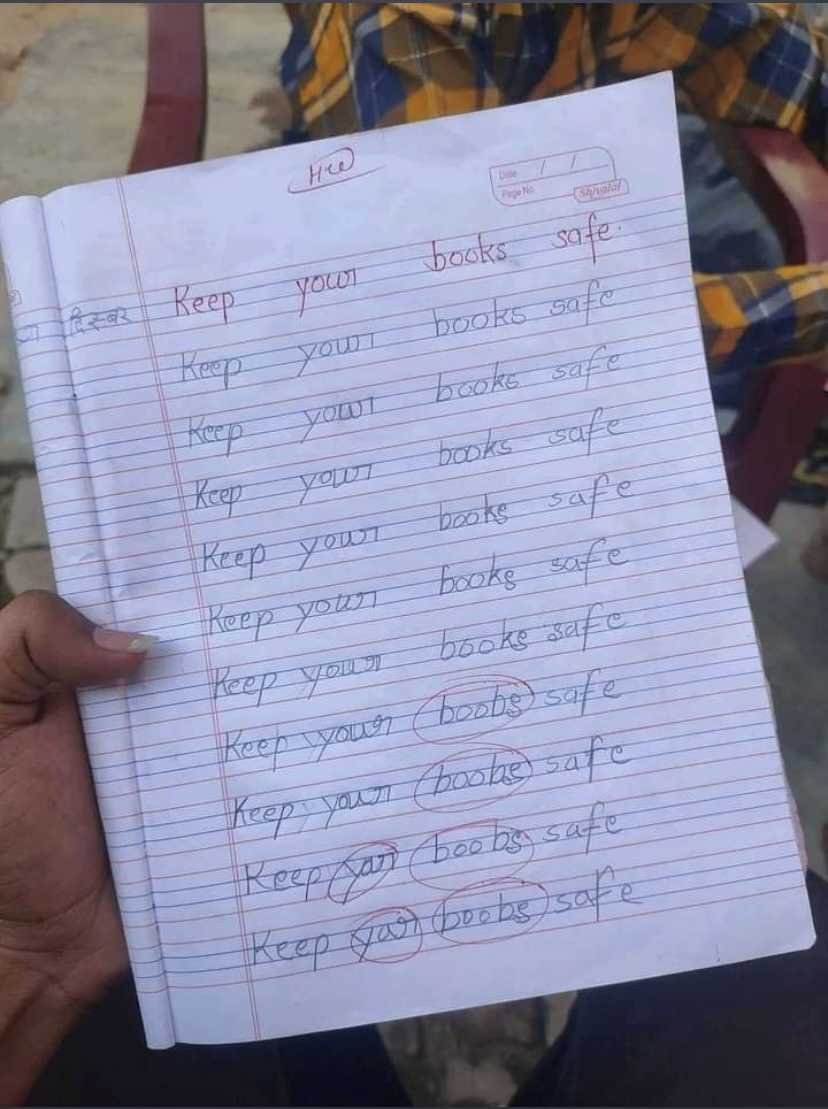 H.W
Date / /
Page No.
Shivalal
Keep your books safe.
दिसंबर
Keep your books safe
Keep your books safe
Keep your books safe
Keep your books safe
Keep your books safe
Keep your books safe
Keep your boobs safe
Keep your boobs safe
Keep yar boobs safe
Keep yar boobs safe